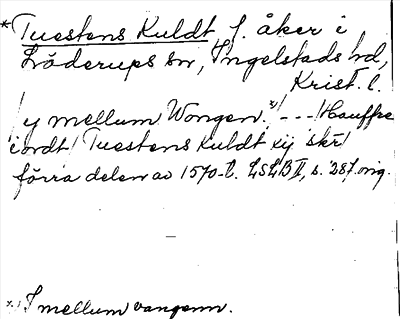 *Tuestens Kuldt f. åker i
Löderups sn, Ingelstads hd,
Krist. l.
/y mellum Wongen. x)/ --- /Hauffre
iordt/ Tuestens Kuldt xij skr/
förra delen av 1570-t. LSLB II, s. 287. orig.
x.) I mellum vangenn.